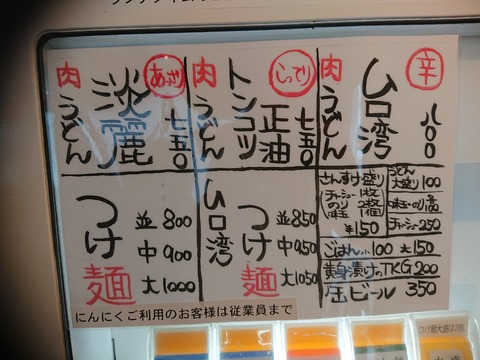 肉うどん
淡麗
あっさり
七五〇
肉うどん
トンコツ正油
こってり
七五〇
肉うどん
台湾
辛
八〇〇
つけ麺
並 800
中 900
大 1000
台湾つけ麺
並 850
中 950
大 1050
さんすけ盛り
チャーシュー 1枚
のり 2枚
味玉 1個
¥150
うどん大盛り 100
味玉・のり 各100
チャーシュー 250
ごはん小 100 大 150
黄身漬けのTKG 200
缶ビール 350
にんにくご利用のお客様は従業員まで